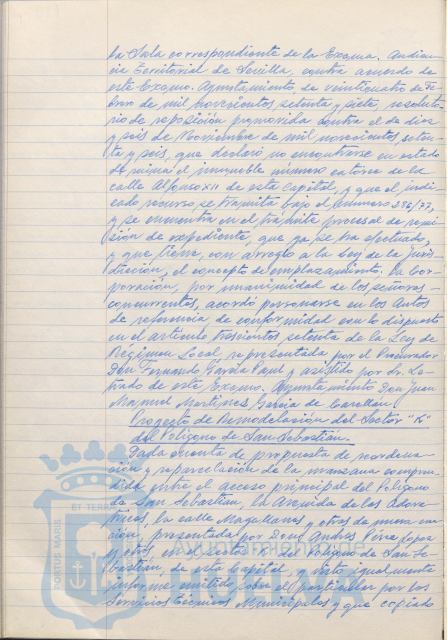 la Sala correspondiente de la Excma. Audien-
cia Territorial de Sevilla, contra acuerdo de
este Excmo. Ayuntamiento, de veinticuatro de Fe-
brero de mil novecientos setenta y siete, resoluto-
rio de reposición promovida contra el de diez
y seis de Noviembre de mil novecientos seten-
ta y seis, que declaró no encontrarse en estado
de ruina el inmueble número catorce de la
calle Alfonso XII de esta Capital, y que el indi-
cado recurso se tramita bajo el número 396/77,
y se encuentra en el trámite procesal de remi-
sión de expediente, que ya se ha efectuado,
y que tiene, con arreglo a la Ley de la Juris-
dicción, el concepto de emplazamiento. La Cor-
poración, por unanimidad de los señores
concurrentes, acordó personarse en los Autos
de referencia de conformidad con lo dispuesto
en el artículo trescientos setenta de la Ley de
Régimen Local, representada por el Procurador
Don Fernando García Paul y asistido por Sr. Le-
trado de este Excmo. Ayuntamiento Don Juan
Manuel Martínez García de
Proyecto de Remodelación del Sector "K"
del Polígono de San Sebastián.
Dada cuenta de propuesta de reordena-
ción y reparcelación de la manzana compren-
dida entre el acceso principal del Polígono
de San Sebastián, la Avenida de las Adora-
trices, la calle Magallanes y otras de nueva crea-
ción, presentada por Don Andrés López
y otros, en el sector K del Polígono de San Se-
bastián, de esta Capital, y visto igualmente
informe emitido sobre el particular por los
Servicios Técnicos Municipales y que copiado
PORTUS MARIS
ET TERRAE
Ayuntamiento de
HUELVA